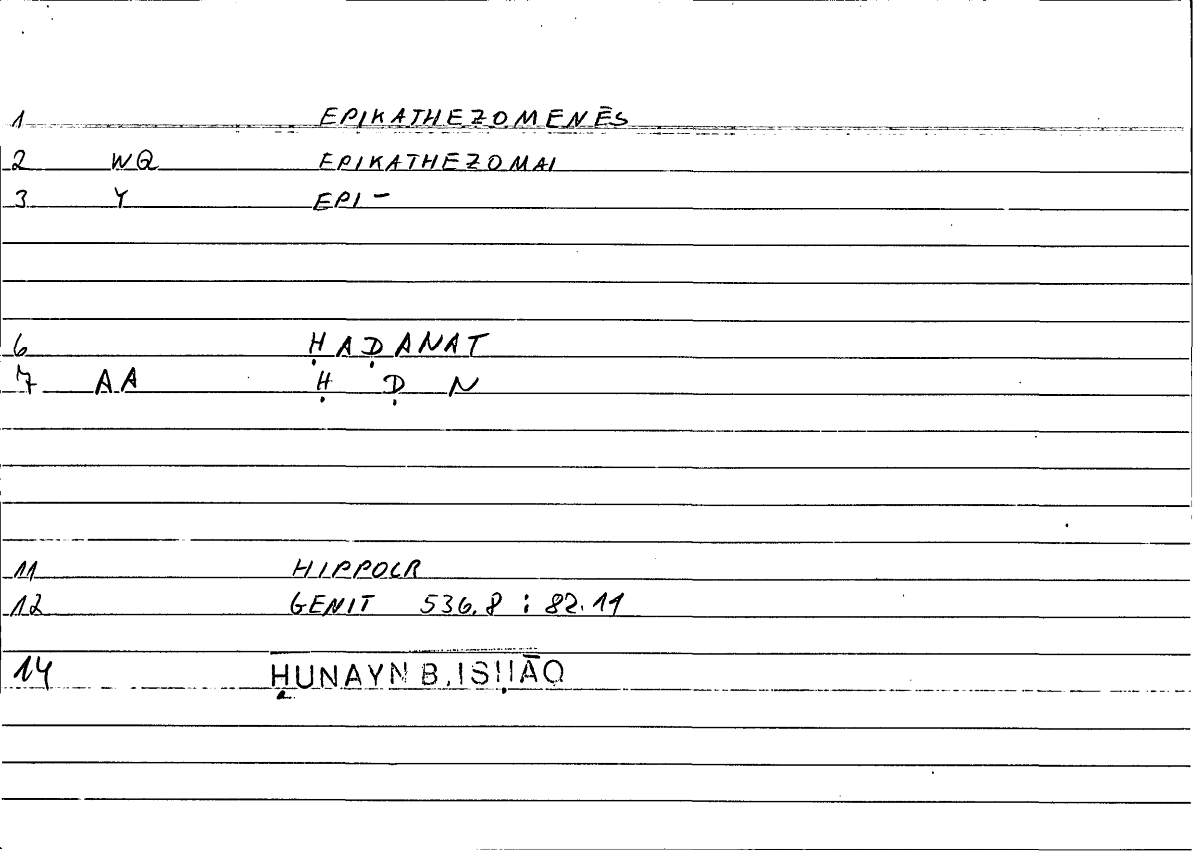 1 EPIKATHEZOMENĒS
2 WQ EPIKATHEZOMAI
3 Y EPI-
6 ḤAḌANAT
7 AA Ḥ Ḍ N
11 HIPPOCR
12 GENIT 536.8 ; 82.11
14 ḤUNAYN B. ISḤĀQ